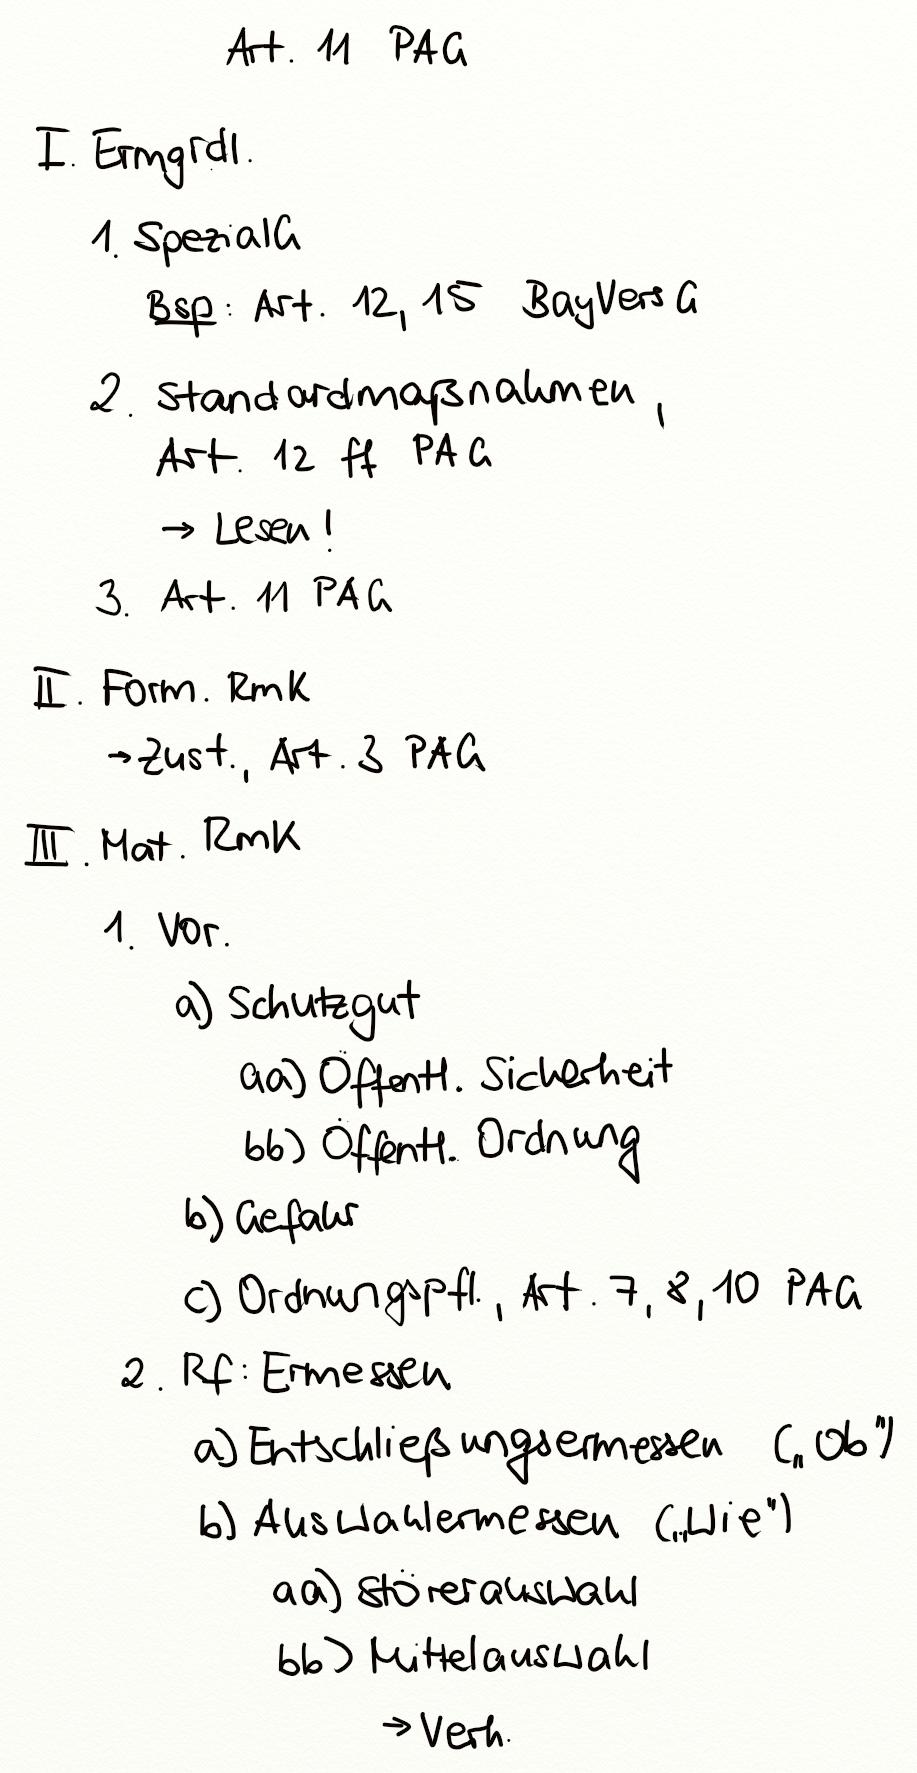 Art. 11 PAG
I. Ermgrdl.
1. SpezialG
Bsp: Art. 12, 15 BayVersG
2. Standardmaßnahmen,
Art. 12 ff PAG
→ Lesen!
3. Art. 11 PAG
II. Form. RmK
→ Zust., Art. 3 PAG
III. Mat. RmK
1. Vor.
a) Schutzgut
aa) Öffentl. Sicherheit
bb) Öffentl. Ordnung
b) Gefahr
c) Ordnungspfl., Art. 7, 8, 10 PAG
2. Rf: Ermessen
a) Entschließungsermessen („Ob")
b) Auswahlermessen („Wie")
aa) Störerauswahl
bb) Mittelauswahl
→ Verh.